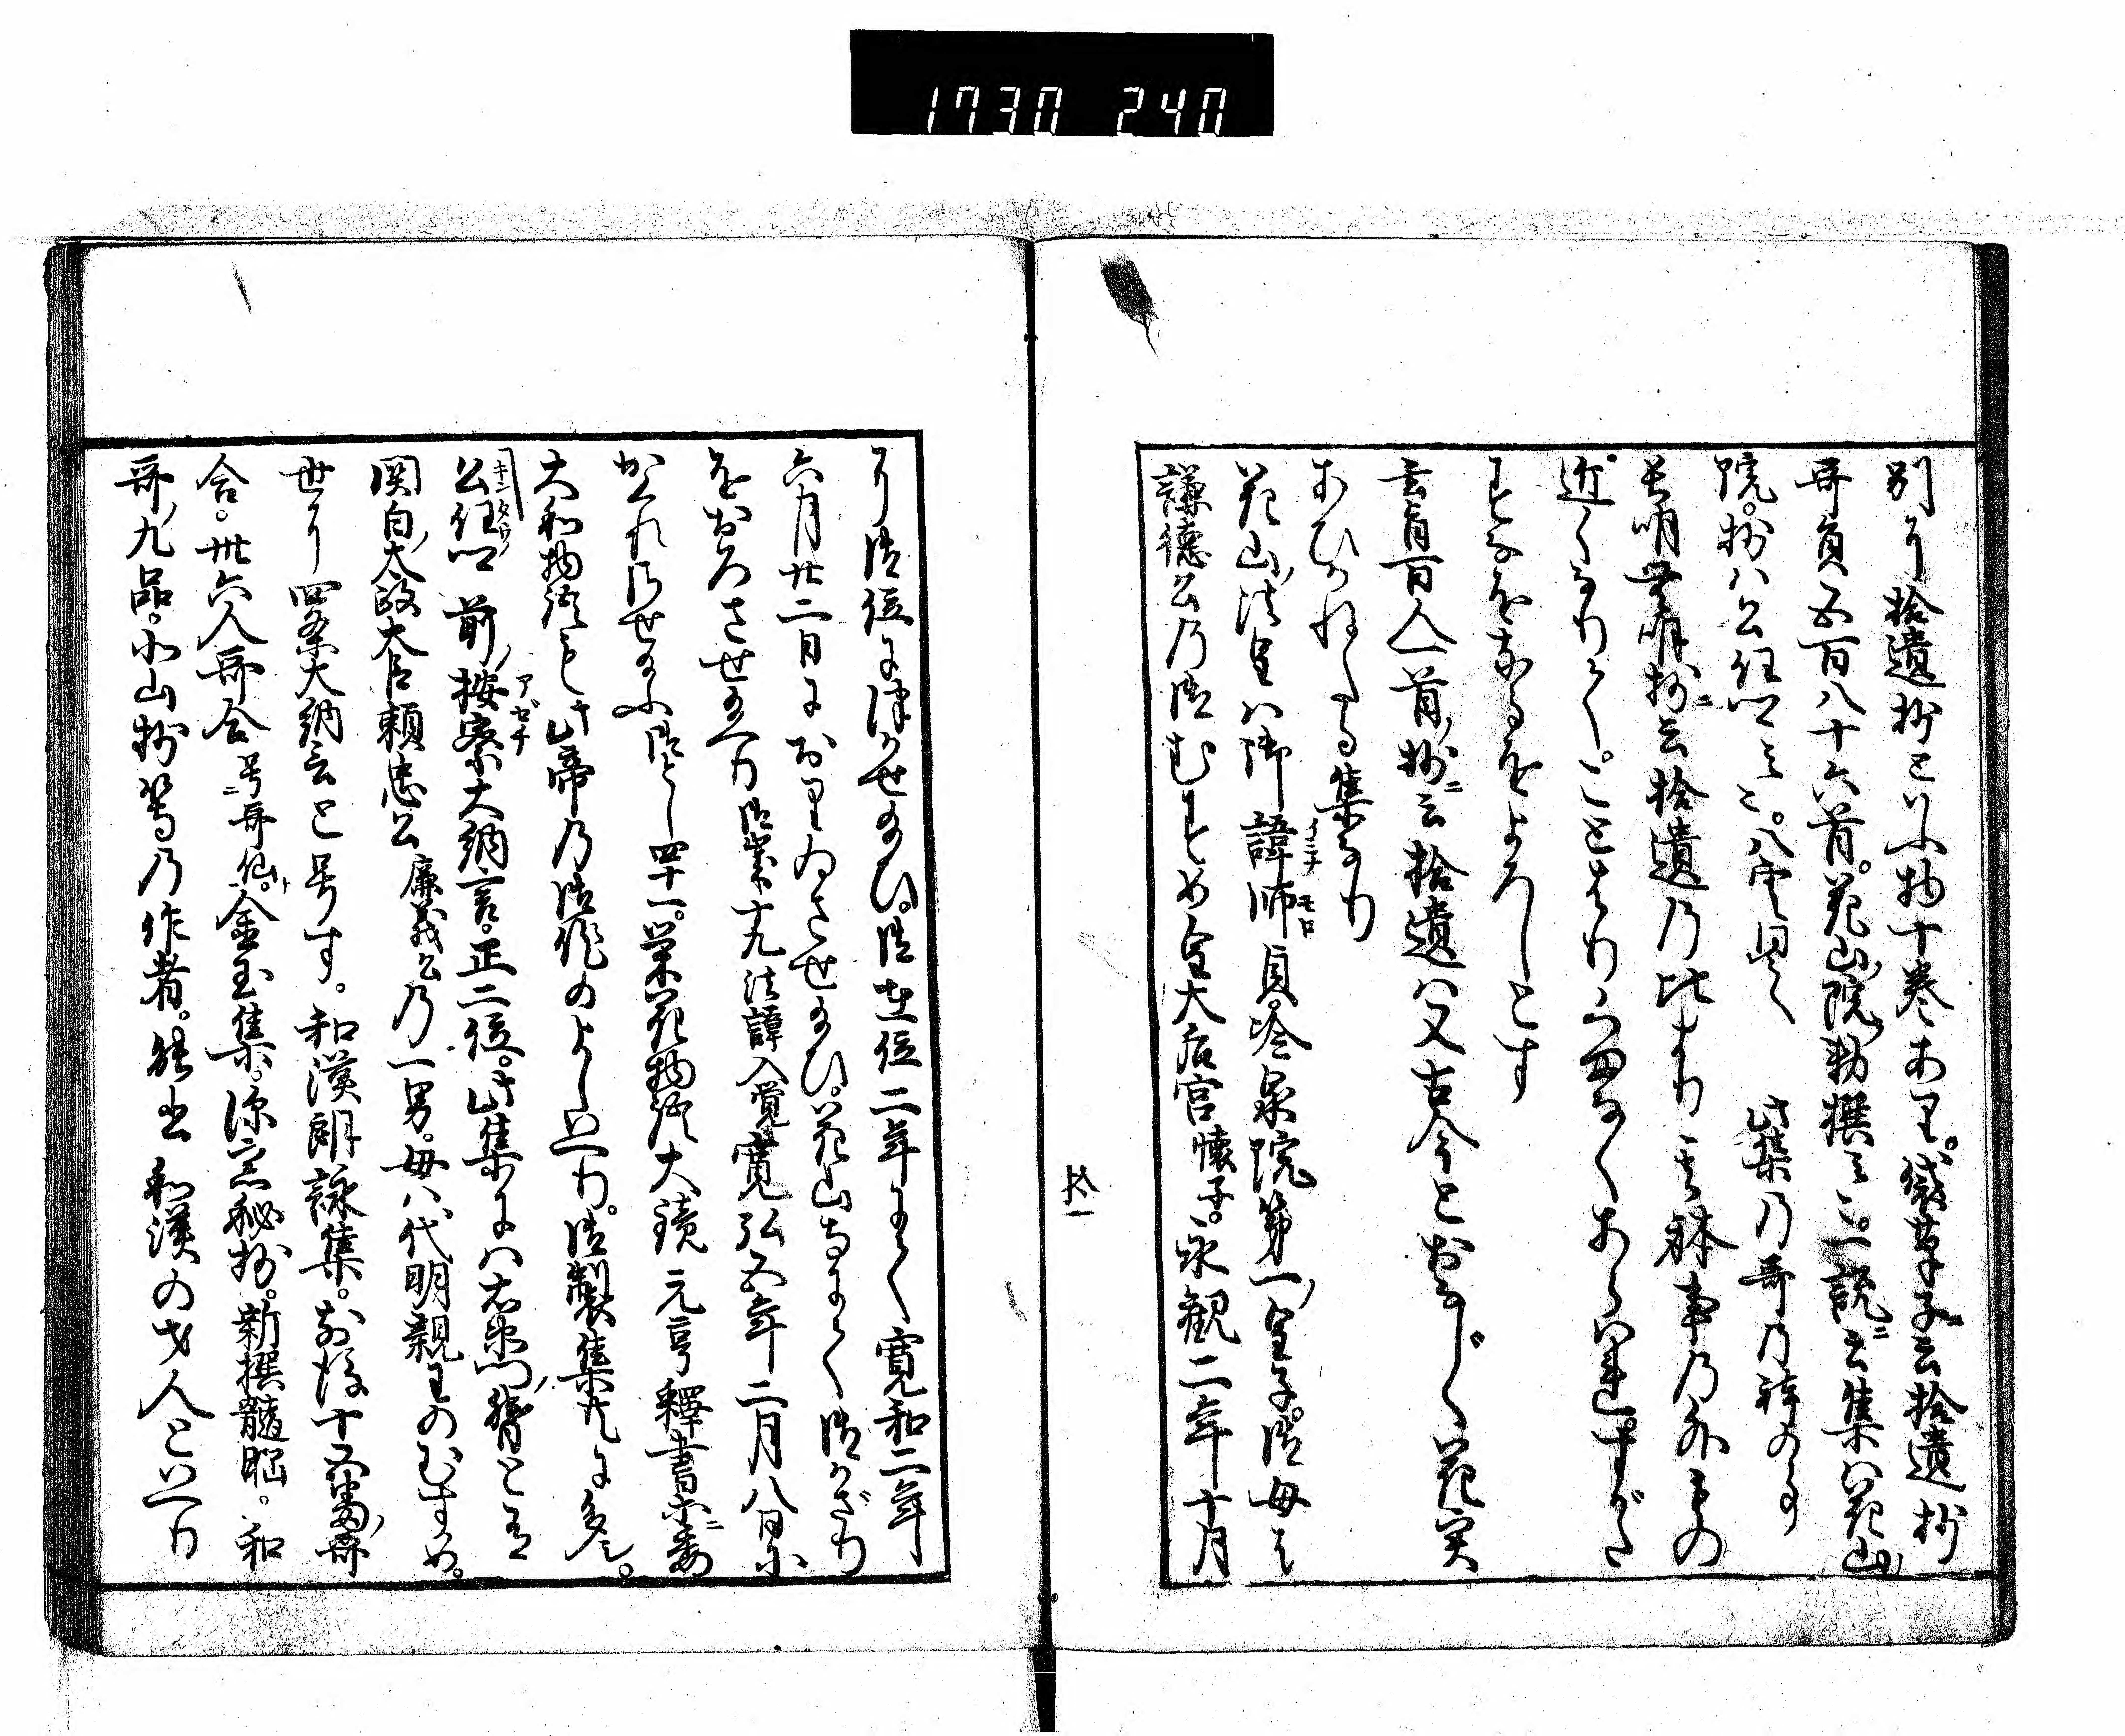 1730 240
別に拾遺抄といふ物十巻あり。袋草子ニ云拾遺抄
哥員五百八十六首。花山院勅撰云々。一説ニ云集ハ花山
院。抄ハ公任卿云々。八雲同之　此集乃哥乃躰の事
長明無明抄ニ云拾遺乃比より其躰事乃外もの
近くなりて。ことはりくまなくあらはれ。すがた
すなほなるをよろしとす
云百人一首抄ニ云拾遺ハ又古今とおなじく花実
あひかねたる集なり
花山法皇ハ御諱師貞。冷泉院第一皇子。御母は
イミナ モロ
謙徳公乃御むすめ皇太后宮懐子。永観二年十月
拾一
に御位に津かせ給ひ。御在位二年にて寛和二年
六月廿二日におりゐさせ給ひ。花山寺にて御かざり
をおろさせ給へり 御歳十九法諱入覚 寛弘五年二月八日に
かくれ乃せ給ふ御とし四十一。栄花物語大鏡元亨釋書ニ委
大和物語も此帝乃御作のよしいへり。御製集尤に多し。
公任卿 前按察大納言。正二位。此集にハ右衛門督と有
キンタウ アゼチ
関白太政大臣頼忠公 廉義公乃一男。母ハ代明親王のむすめ。
世に四条大納言と号す。和漢朗詠集。前後十五番哥
合。卅六人哥合 号哥仙ト。金玉集。深窓秘抄。新撰髄脳。和
哥九品。北山抄等乃作者。能書和漢の才人といへり